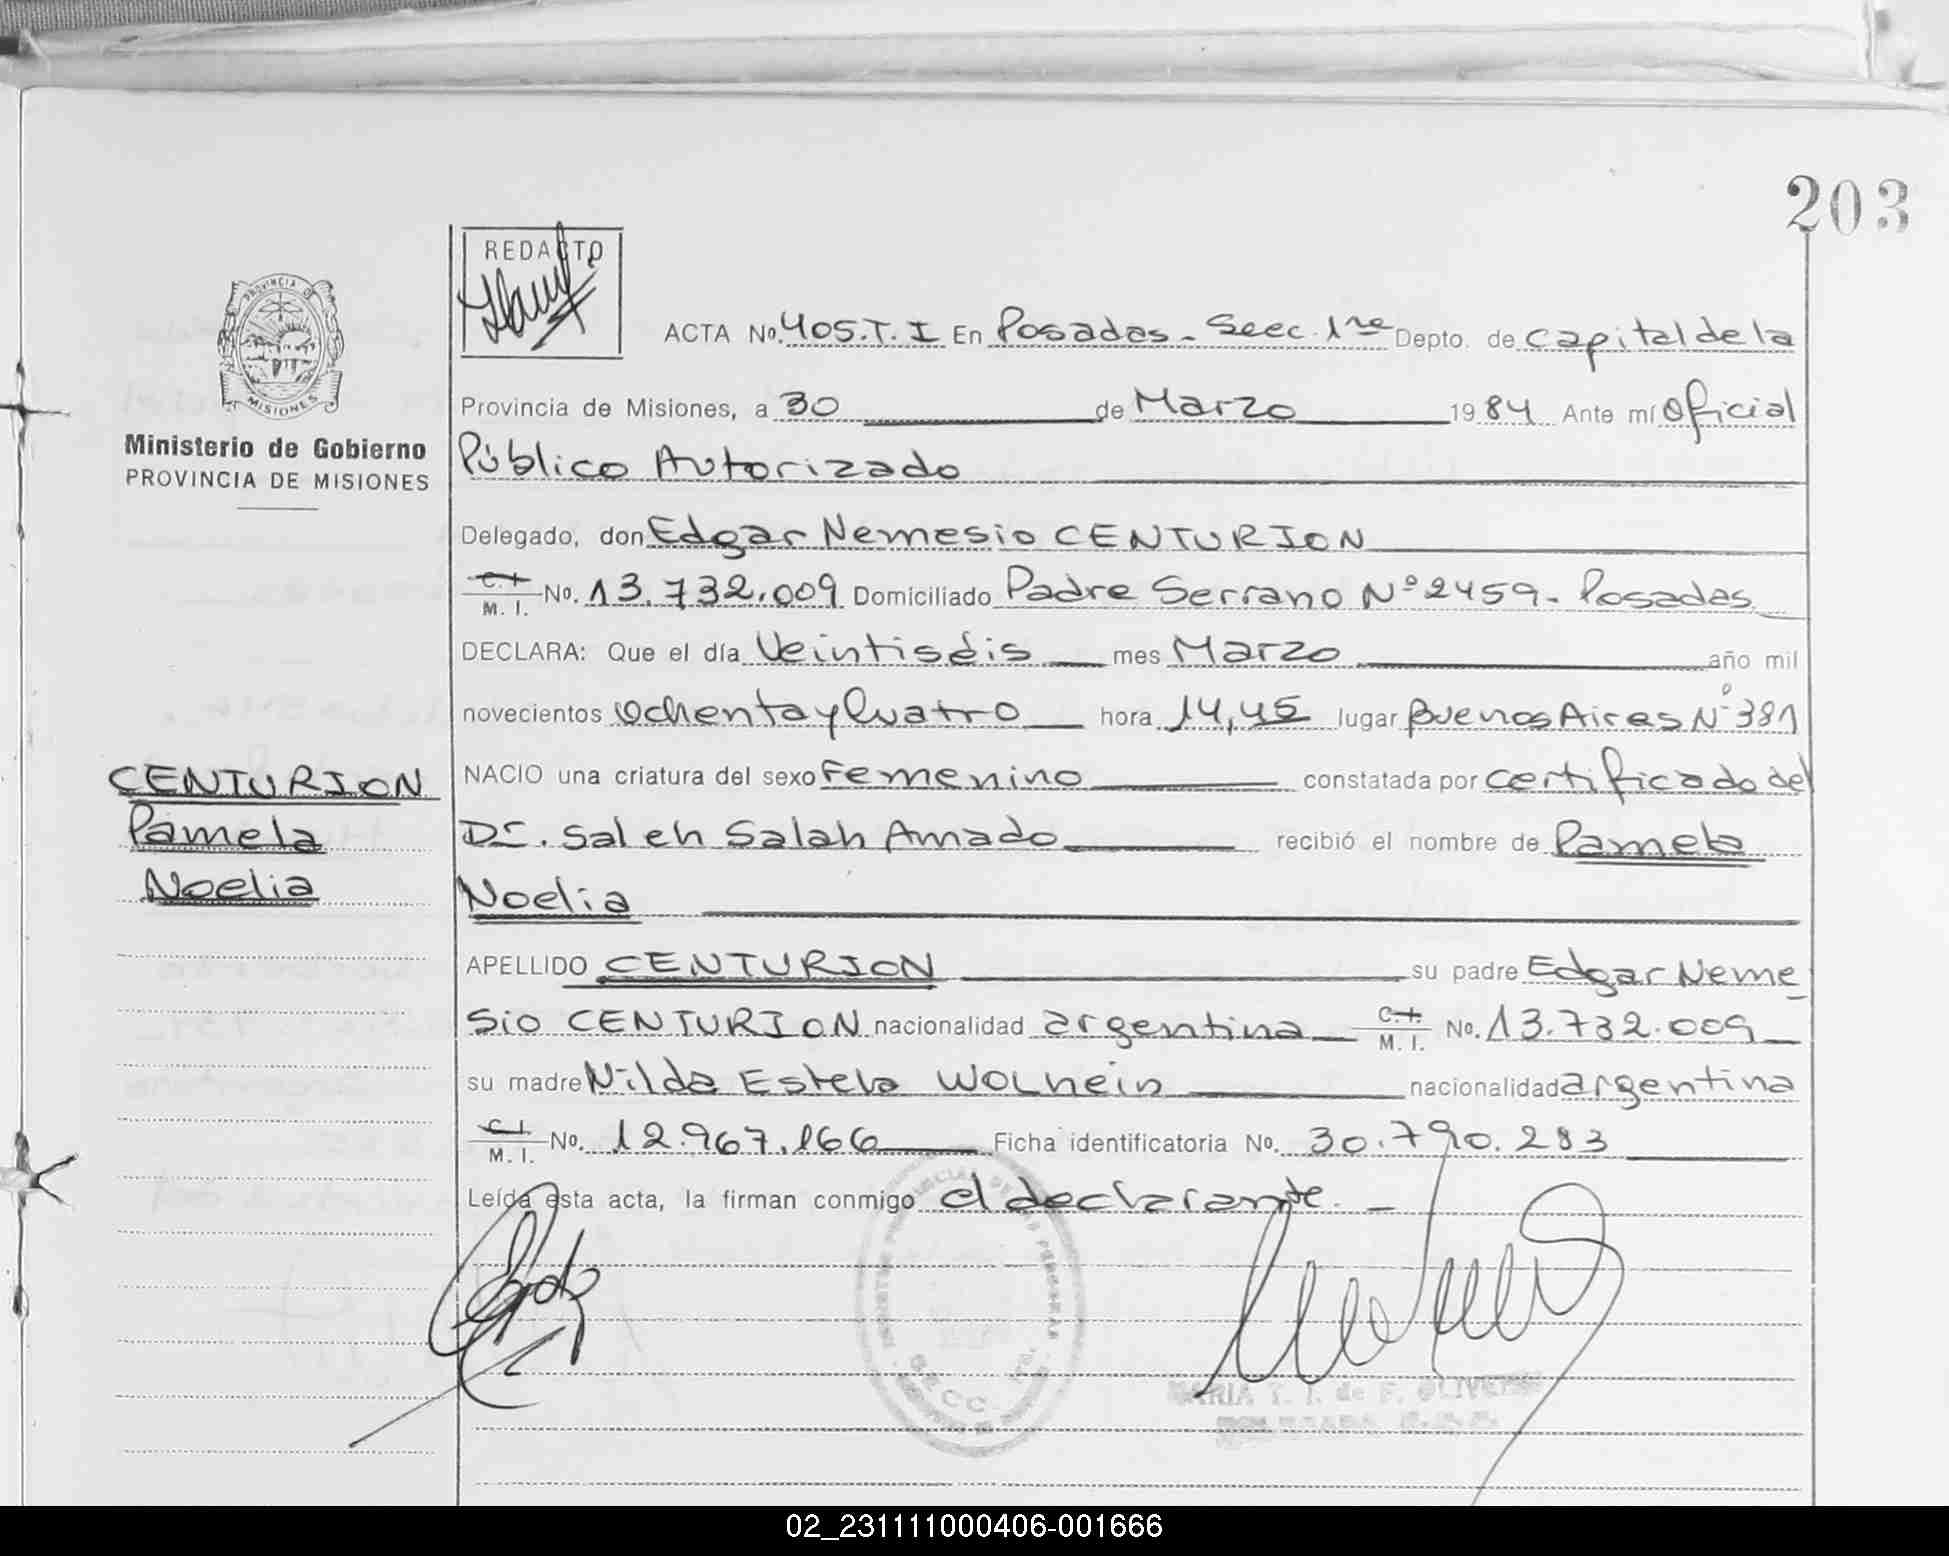 203
REDACTO
PROVINCIA DE
MISIONES
Ministerio de Gobierno
PROVINCIA DE MISIONES
ACTA No. 405.T.I En Posadas - Secc. 1ra Depto. de Capital de la
Provincia de Misiones, a 30 de Marzo 1984 Ante mí Oficial
Público Autorizado
Delegado, don Edgar Nemesio CENTURION
C.I. M. I. No. 13.732.009 Domiciliado Padre Serrano Nº 2459 - Posadas
DECLARA: Que el día Veintiséis mes Marzo año mil
novecientos Ochenta y Cuatro hora 14,45 lugar Buenos Aires Nº 381
NACIO una criatura del sexo Femenino constatada por Certificado del
Dr. Saleh Salah Amado recibió el nombre de Pamela
Noelia
CENTURION
Pamela
Noelia
APELLIDO CENTURION su padre Edgar Neme
sio CENTURION nacionalidad argentina C.I. M. I. No. 13.732.009
su madre Nilda Estela WOLHEIN nacionalidad argentina
C.I. M. I. No. 12.967.166 Ficha identificatoria No. 30.790.283
Leída esta acta, la firman conmigo el declarante. -
SECC. 1ra.
MARIA T. I. de F. OLIVERA
02_231111000406-001666